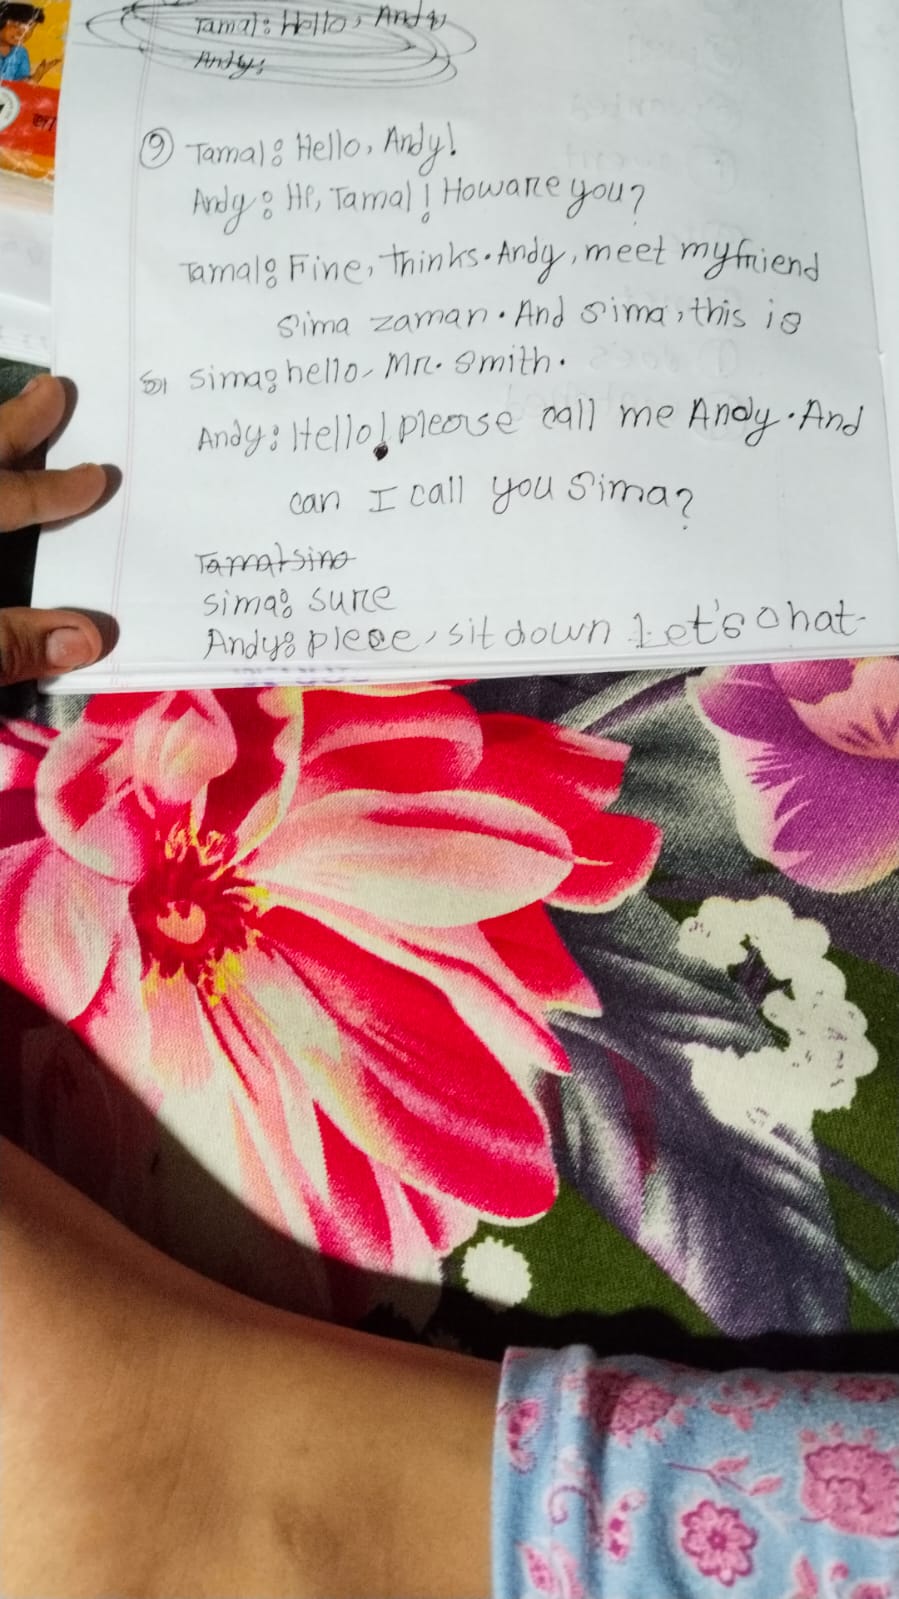 Tamal: Hello, Andy,
Andy:
9 Tamal: Hello, Andy!
Andy: Hi, Tamal! How are you?
Tamal: Fine, thinks. Andy, meet my friend
Sima zaman. And sima, this is
Sima: hello, Mr. Smith.
Andy: Hello! please call me Andy. And
can I call you Sima?
Sima: sure
Andy: plece, sit down Let's chat.